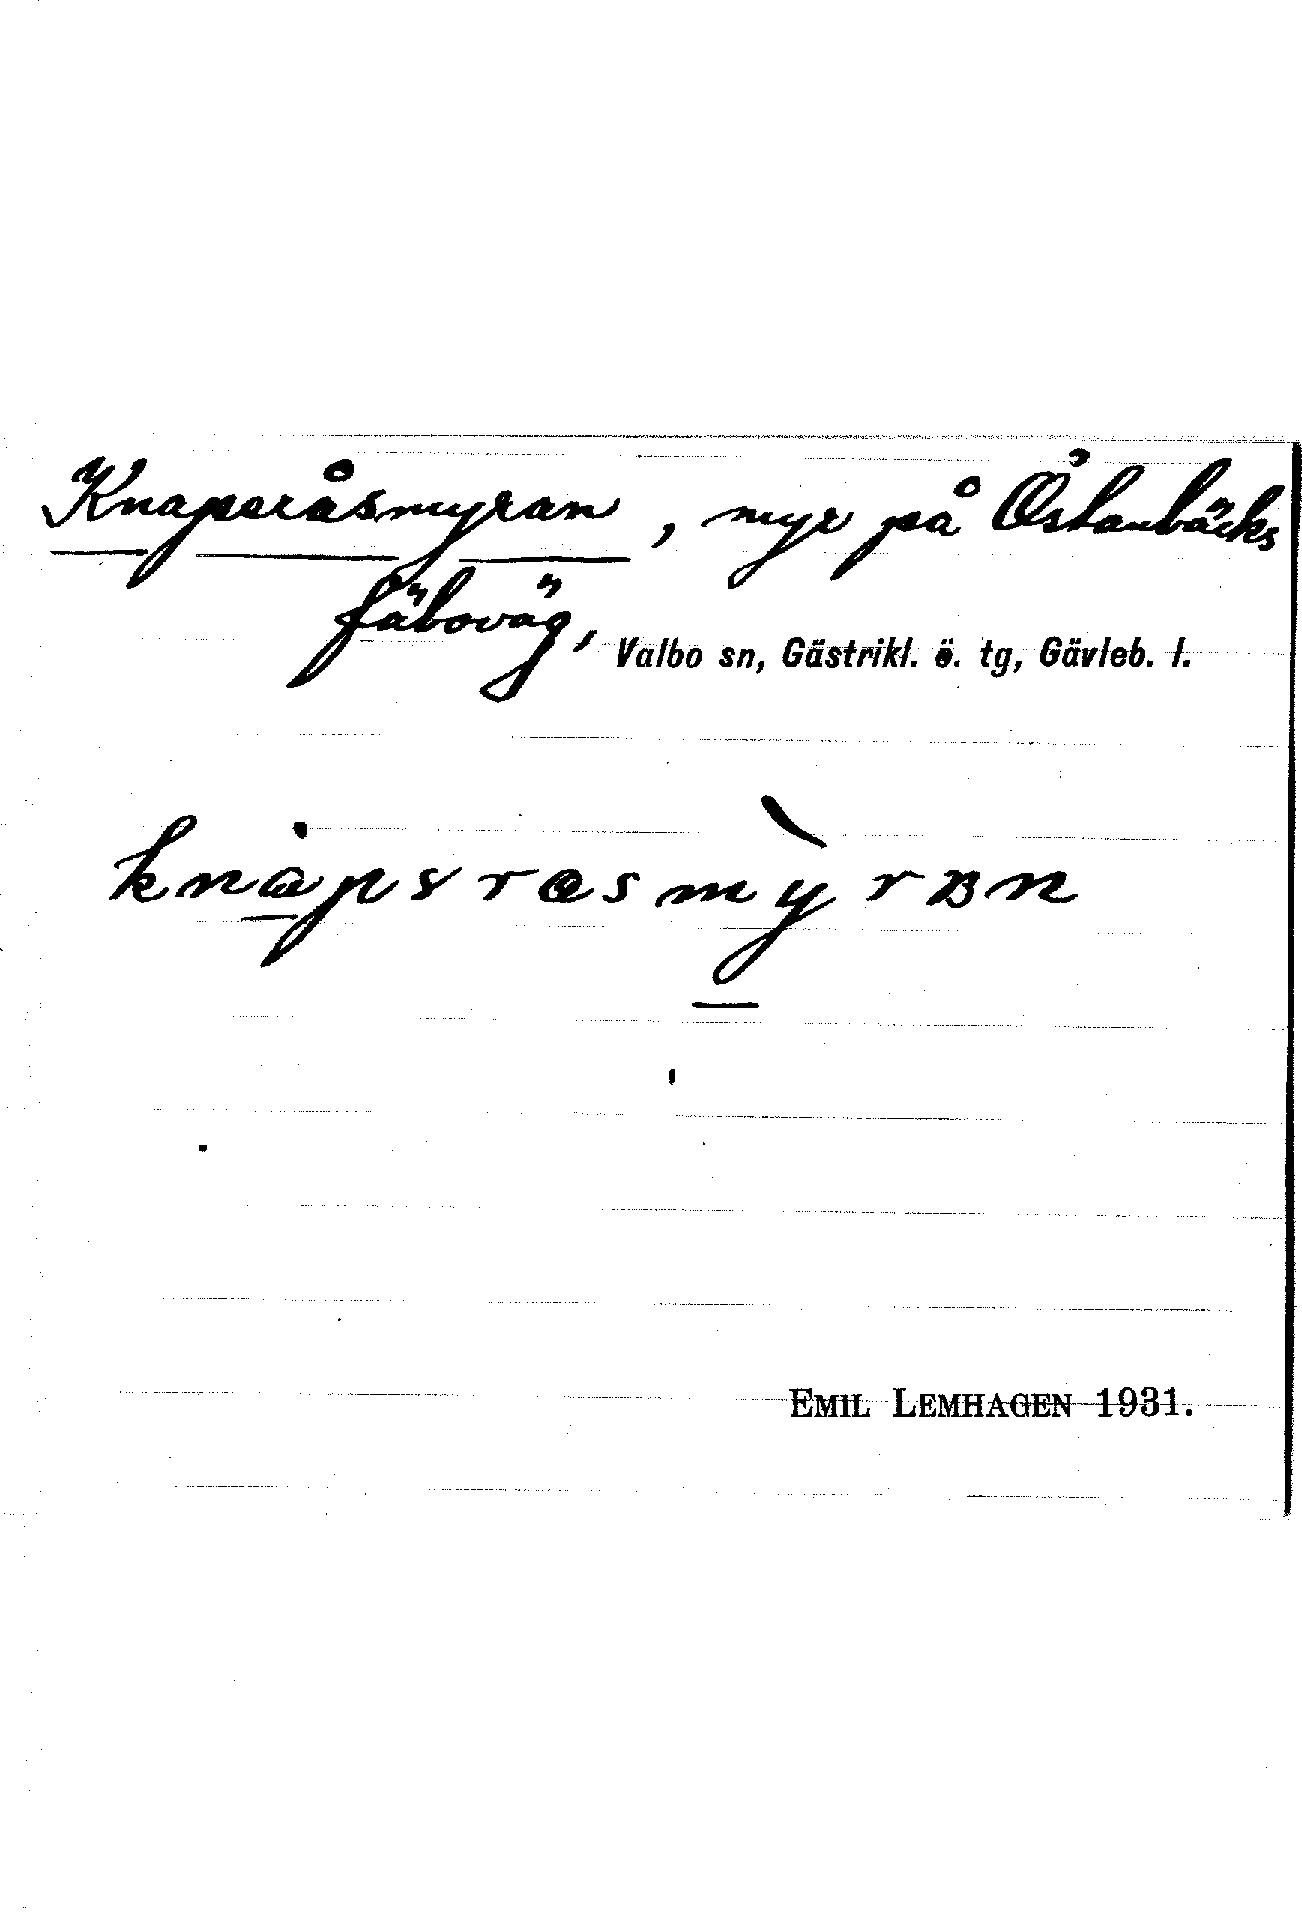 Knaperåsmyran, myr på Östanbäcks
fäboväg, Valbo sn, Gästrikl. ö. tg, Gävleb. l.
EMIL LEMHAGEN 1931.